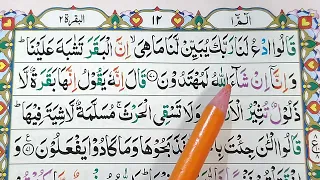 الٓمّٓ ١ ١٢ البقرة ٢
قَالُوا ادْعُ لَنَا رَبَّكَ يُبَيِّنْ لَّنَا مَا هِىَ ۙ اِنَّ الْبَقَرَ تَشٰبَهَ عَلَيْنَا ؕ
وَ اِنَّاۤ اِنْ شَآءَ اللّٰهُ لَمُهْتَدُوْنَ ۝ قَالَ اِنَّهٗ يَقُوْلُ اِنَّهَا بَقَرَةٌ لَّا
ذَلُوْلٌ تُثِيْرُ الْاَرْضَ وَلَا تَسْقِى الْحَرْثَ ۚ مُسَلَّمَةٌ لَّا شِيَةَ فِيْهَا ؕ
قَالُوا الْـٰٔنَ جِئْتَ بِالْحَقِّ ؕ فَذَبَحُوْهَا وَمَا كَادُوْا يَفْعَلُوْنَ ۝